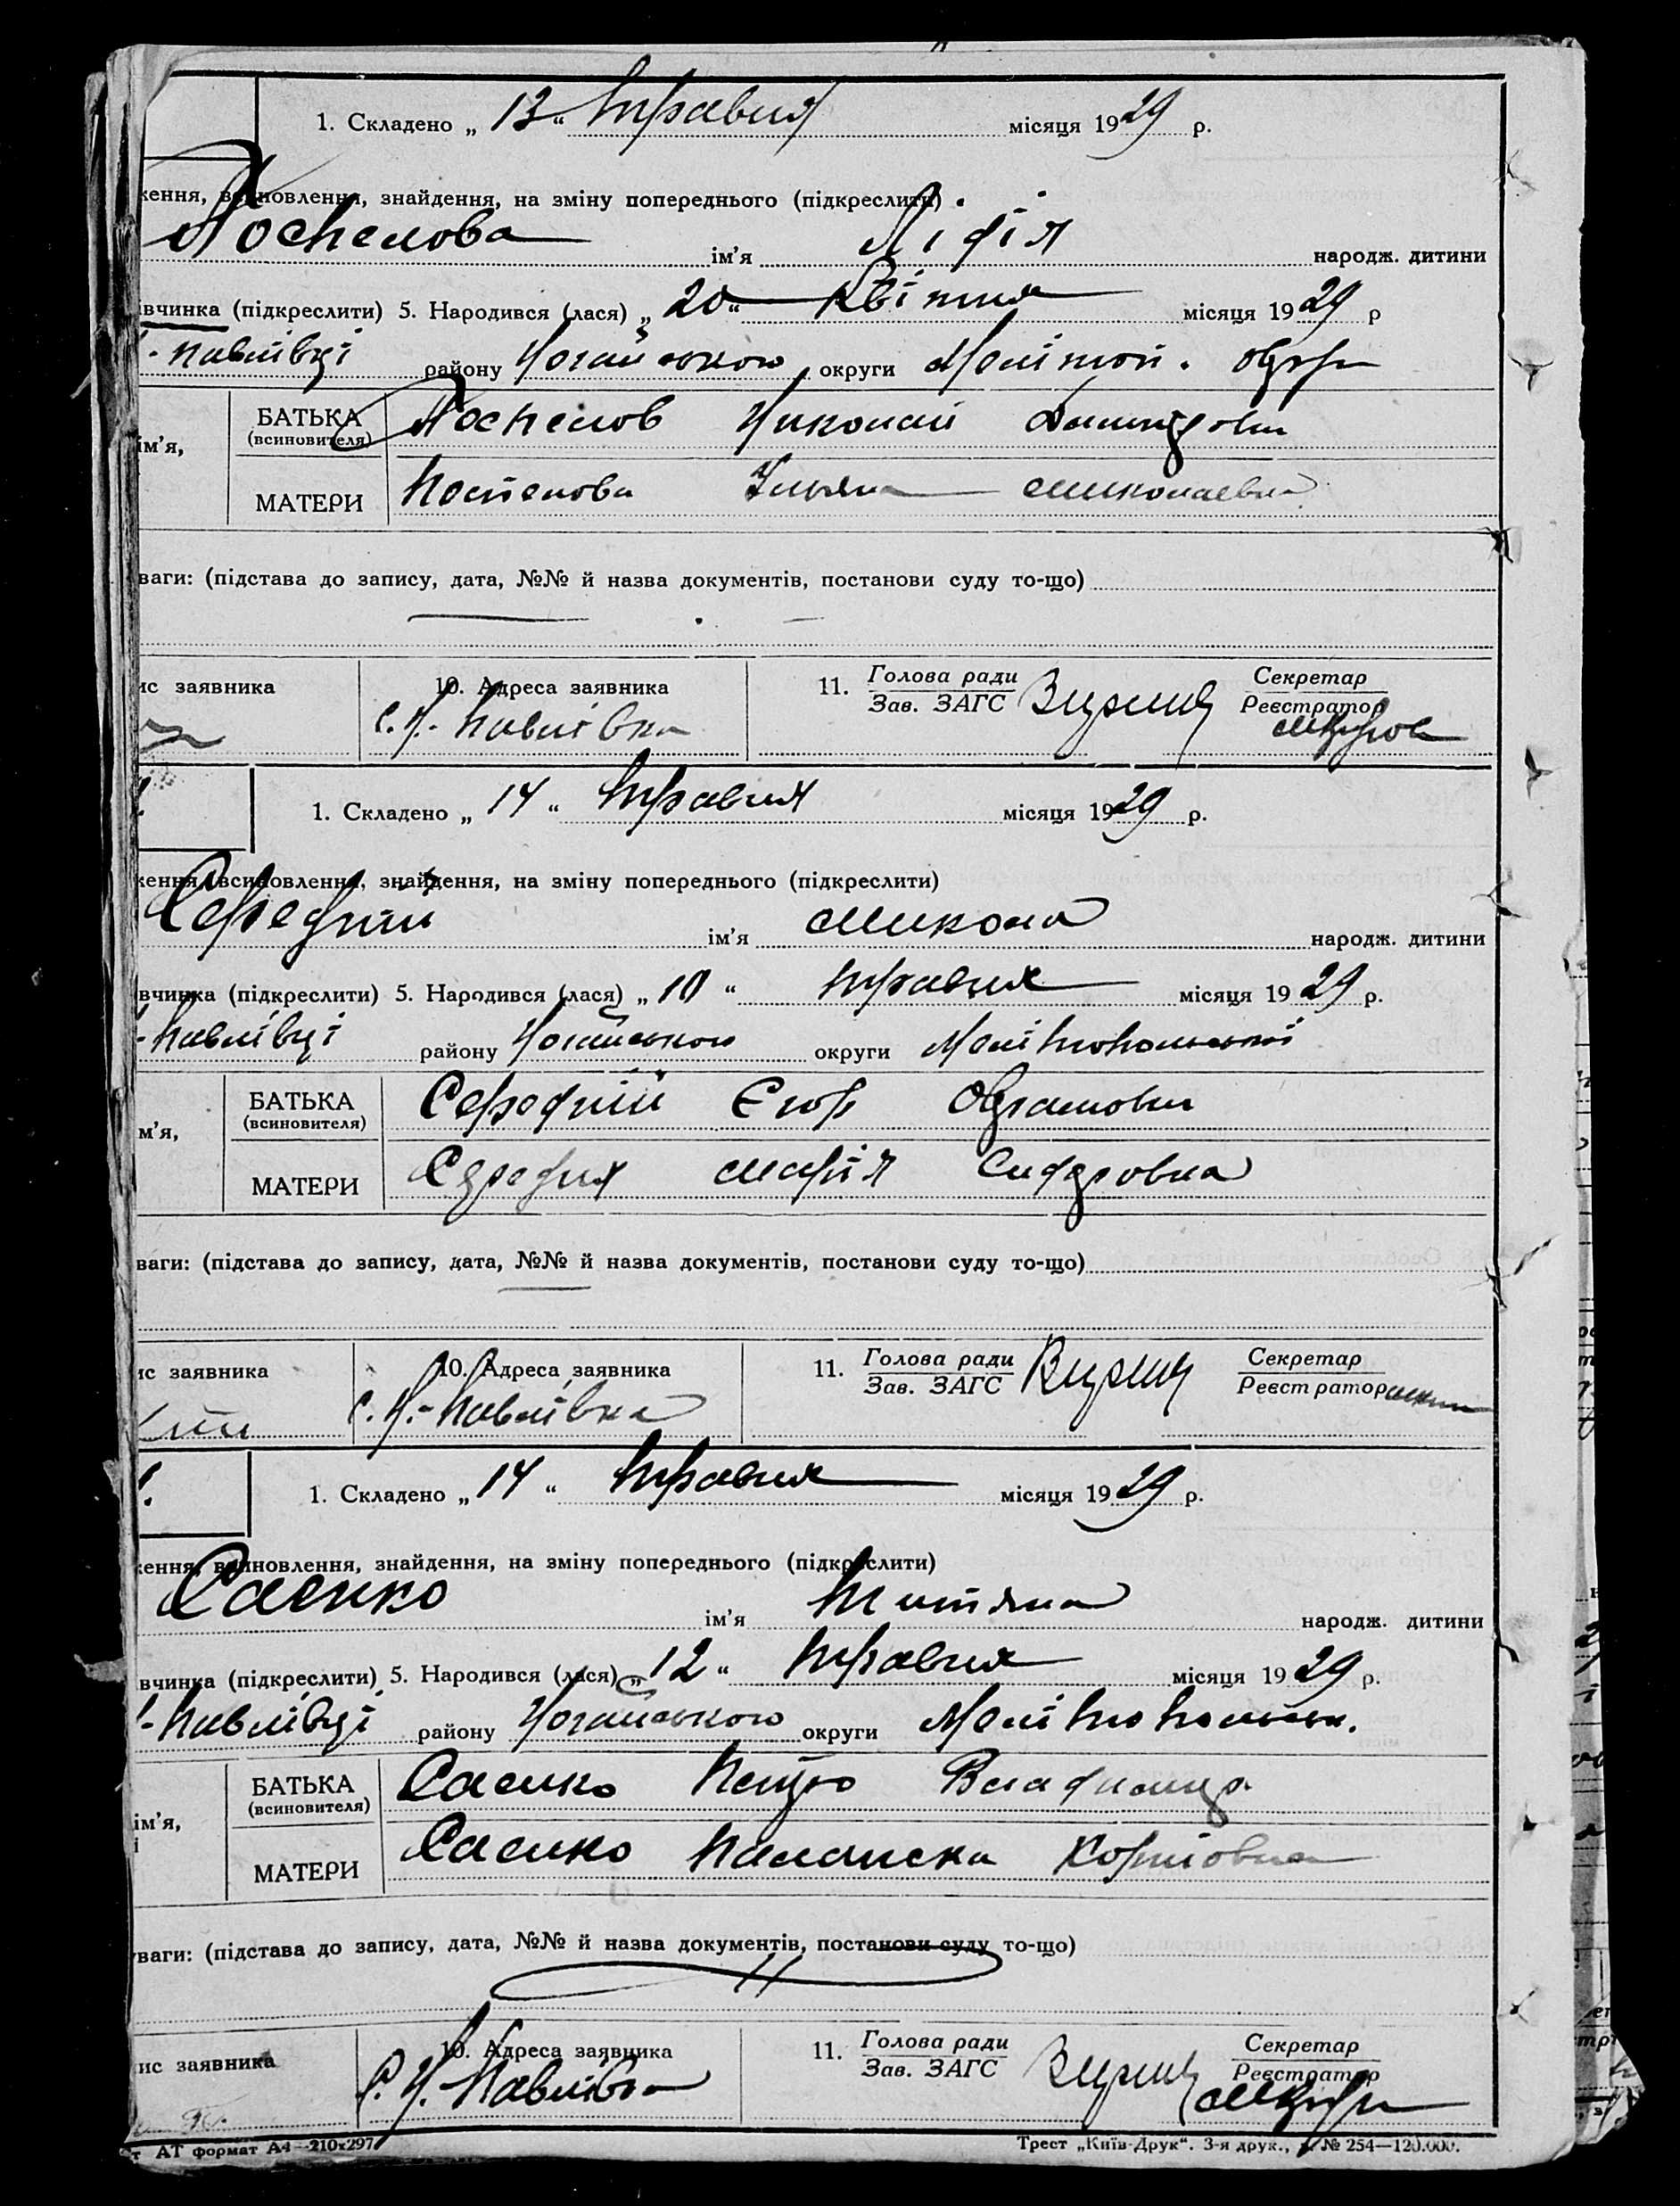 1. Складено „ 13 “ травня місяця 1929 р.
ження, всиновлення, знайдення, на зміну попереднього (підкреслити)
Поспелова ім'я Лідія народж. дитини
івчинка (підкреслити) 5. Народився (лася) „ 20 “ Квітня місяця 1929 р
- Павлівці району Ногайського округи Мелітоп. округи
ім'я, БАТЬКА (всиновителя) Поспелов Николай
МАТЕРИ Поспелова Ульяна Миколаевна
ваги: (підстава до запису, дата, №№ й назва документів, постанови суду то-що)
ис заявника 10. Адреса заявника 11. Голова ради Секретар
Зав. ЗАГС Реєстратор
с. Н.-Павлівка
1. Складено „ 14 “ травня місяця 1929 р.
ження, всиновлення, знайдення, на зміну попереднього (підкреслити)
Середній ім'я Микола народж. дитини
вчинка (підкреслити) 5. Народився (лася) „ 10 “ травня місяця 1929 р.
- Павлівці району Ногайського округи Мелітопольської
м'я, БАТЬКА (всиновителя) Середній Єгор
МАТЕРИ Середня Марія Сидоровна
ваги: (підстава до запису, дата, №№ й назва документів, постанови суду то-що)
ис заявника 10. Адреса заявника 11. Голова ради Секретар
Зав. ЗАГС Реєстратор
с. Н.-Павлівка
1. Складено „ 14 “ травня місяця 1929 р.
ження, всиновлення, знайдення, на зміну попереднього (підкреслити)
Саенко ім'я Титяна народж. дитини
вчинка (підкреслити) 5. Народився (лася) „ 12 “ травня місяця 1929 р.
- Павлівці району Ногайського округи Мелітопольськ.
ім'я, БАТЬКА (всиновителя) Саенко Петро Владимир.
МАТЕРИ Саенко Палажка
уваги: (підстава до запису, дата, №№ й назва документів, постанови суду то-що)
ис заявника 10. Адреса заявника 11. Голова ради Секретар
Зав. ЗАГС Реєстратор
с. Н.-Павлівка
т АТ формат А4—210х297 Трест „Київ-Друк“. 3-я друк., № 254—120.000.